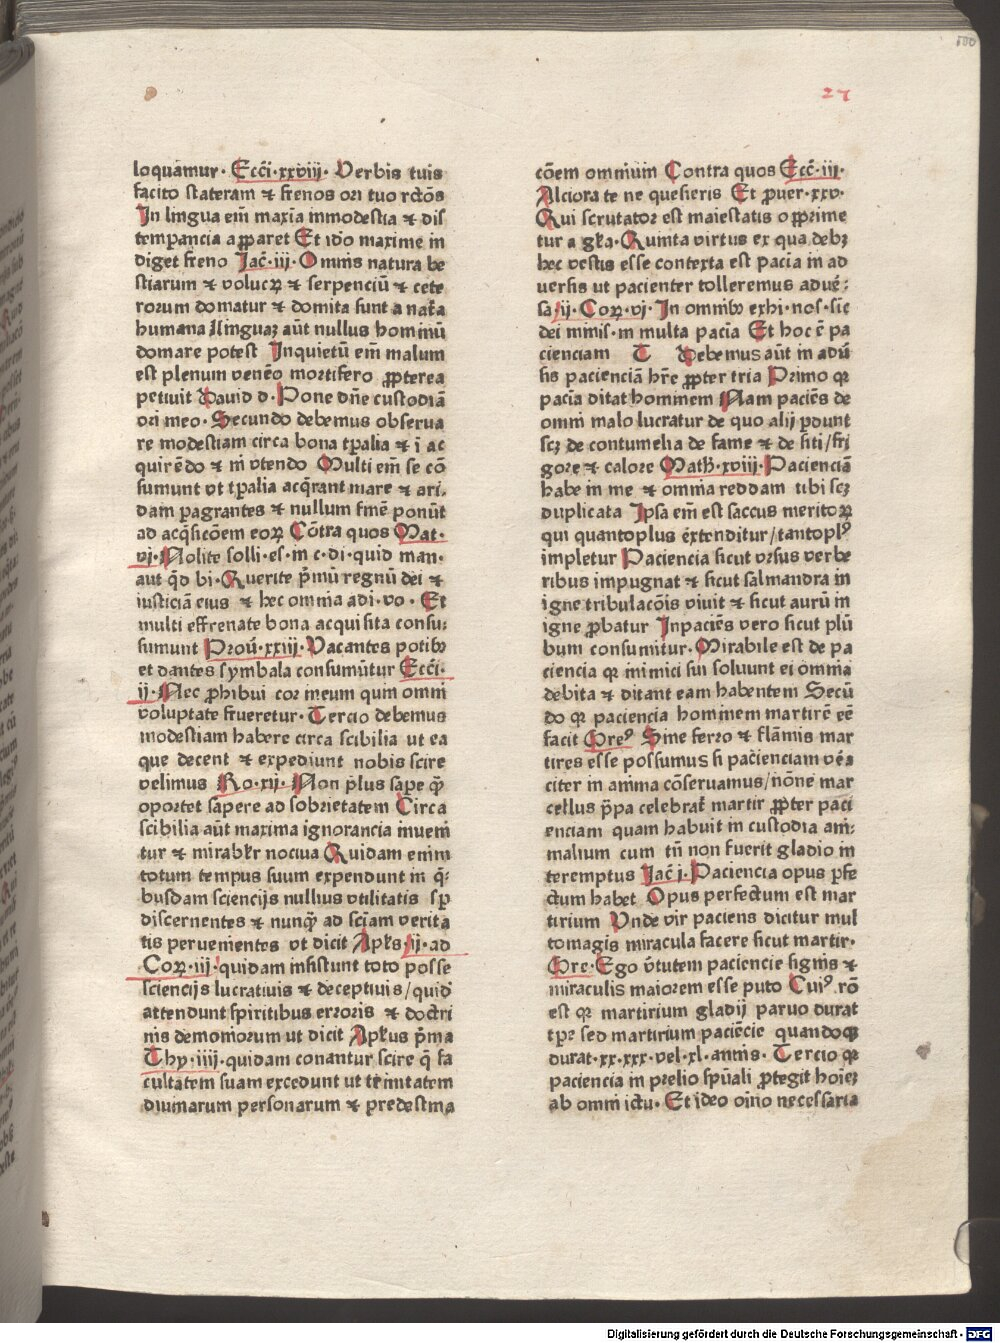 27
loquamur· Ecci·xxviij· Verbis tuis
facito stateram ⁊ frenos ori tuo rctōs
In lingua em̄ maxia inmodestia ⁊ dis
temꝑancia apparet Et ido maxime in
diget freno Jac̄·iij· Omnis natura be
stiarum ⁊ volucꝝ ⁊ serpenciū ⁊ cete
rorum domatur ⁊ domita sunt a nata
humana linguaȝ aūt nullus hominū
domare potest Inquietū em̄ malum
est plenum venēo mortifero ꝓpterea
petiuit Dauid d· Pone dn̄e custodiā
ori meo· Secundo debemus obserua
re modestiam circa bona tꝑalia ⁊ ī ac
quirēdo ⁊ ī vtendo Multi em̄ se cō
sumunt vt tꝑalia acq̄rant mare ⁊ ari
dam ꝑagrantes ⁊ nullum finē ponūt
ad acq̄sicōem eoꝝ Cōtra quos Mat·
vj· Nolite solli·es·in c·di·quid man·
aut qd̄ bi· Querite pm̄ū regnū dei ⁊
iusticiā eius ⁊ hec omnia adi·vo· Et
multi effrenate bona acquisita consu
sumunt Prou·xxiij· Vacantes potibꝫ
et dantes symbala consumūtur Ecci·
ij· Nec ꝓhibui cor meum quin omni
voluptate frueretur· Tercio debemus
modestiam habere circa scibilia ut ea
que decent ⁊ expediunt nobis scire
velimus Ro·xij· Non plus sape qp̄
oportet sapere ad sobrietatem Circa
scibilia aūt maxima ignorancia inueni
tur ⁊ mirabl'r nociua Quidam enim
totum tempus suum expendunt in q̄
busdam sciencijs nullius vtilitatis sp̄
discernentes ⁊ nunq̄ ad sciam verita
tis peruenientes vt dicit Apl's ij·ad
Coꝝ·iij· quidam insistunt toto posse
sciencijs lucratiuis ⁊ deceptiuis/quid
attendunt spiritibus erroris ⁊ doctri
nis demoniorum ut dicit Apl'us pm̄a
Thy·iiij·quidam conantur scire q̄ fa
cultatem suam excedunt ut trinitatem
diuinarum personarum ⁊ predestina
cōem omnium Contra quos Ecc̄·iij·
Alciora te ne quesieris Et ꝓuer·xxv·
Qui scrutator est maiestatis opprime
tur a gl'a· Quinta virtus ex qua debꝫ
hec vestis esse contexta est pacia in ad
uersis ut pacienter tolleremus aduē
sa ij·Coꝝ·vj· In omnibꝫ exhi·nos·sic
dei minis·in multa pacia Et hoc ē pa
cienciam Debemus aūt in adū
sis pacienciā hr̄e ꝓpter tria Primo qꝛ
pacia ditat hominem Nam paciēs de
omni malo lucratur de quo alij ꝑdunt
scꝫ de contumelia de fame ⁊ de siti/fri
gore ⁊ calore Math·xviij· Pacienciā
habe in me ⁊ omnia reddam tibi scꝫ
duplicata Ipsa em̄ est saccus meritoꝝ
qui quantoplus extenditur/tantoplꝰ
impletur Paciencia sicut vrsus verbe
ribus impugnat ⁊ sicut salmandra in
igne tribulacōis viuit ⁊ sicut aurū in
igne ꝓbatur Inpaciēs vero sicut plū
bum consumitur· Mirabile est de pa
ciencia qꝛ inimici sui soluunt ei omnia
debita ⁊ ditant eam habentem Secū
do qꝛ paciencia hominem martirē eē
facit Greꝰ Sine ferro ⁊ flāmis mar
tires esse possumus si pacienciam vēa
citer in anima cōseruamus/nōne mar
cellus pp̄a celebrat martir ꝓpter paci
enciam quam habuit in custodia ani
malium cum tn̄ non fuerit gladio in
teremptus Jac̄ j· Paciencia opus ꝑfe
ctum habet Opus perfectum est mar
tirium Vnde vir paciens dicitur mul
tomagis miracula facere sicut martir·
Gre· Ego v̄tutem paciencie signis ⁊
miraculis maiorem esse puto Cuiꝰ rō
est qꝛ martirium gladij paruo durat
tꝑe sed martirium paciēcie quandoqꝫ
durat·xx·xxx·vel·xl·annis· Tercio qꝛ
paciencia in prelio spūali ꝓtegit hoīeȝ
ab omni ictu· Et ideo oīno necessaria
Digitalisierung gefördert durch die Deutsche Forschungsgemeinschaft · DFG